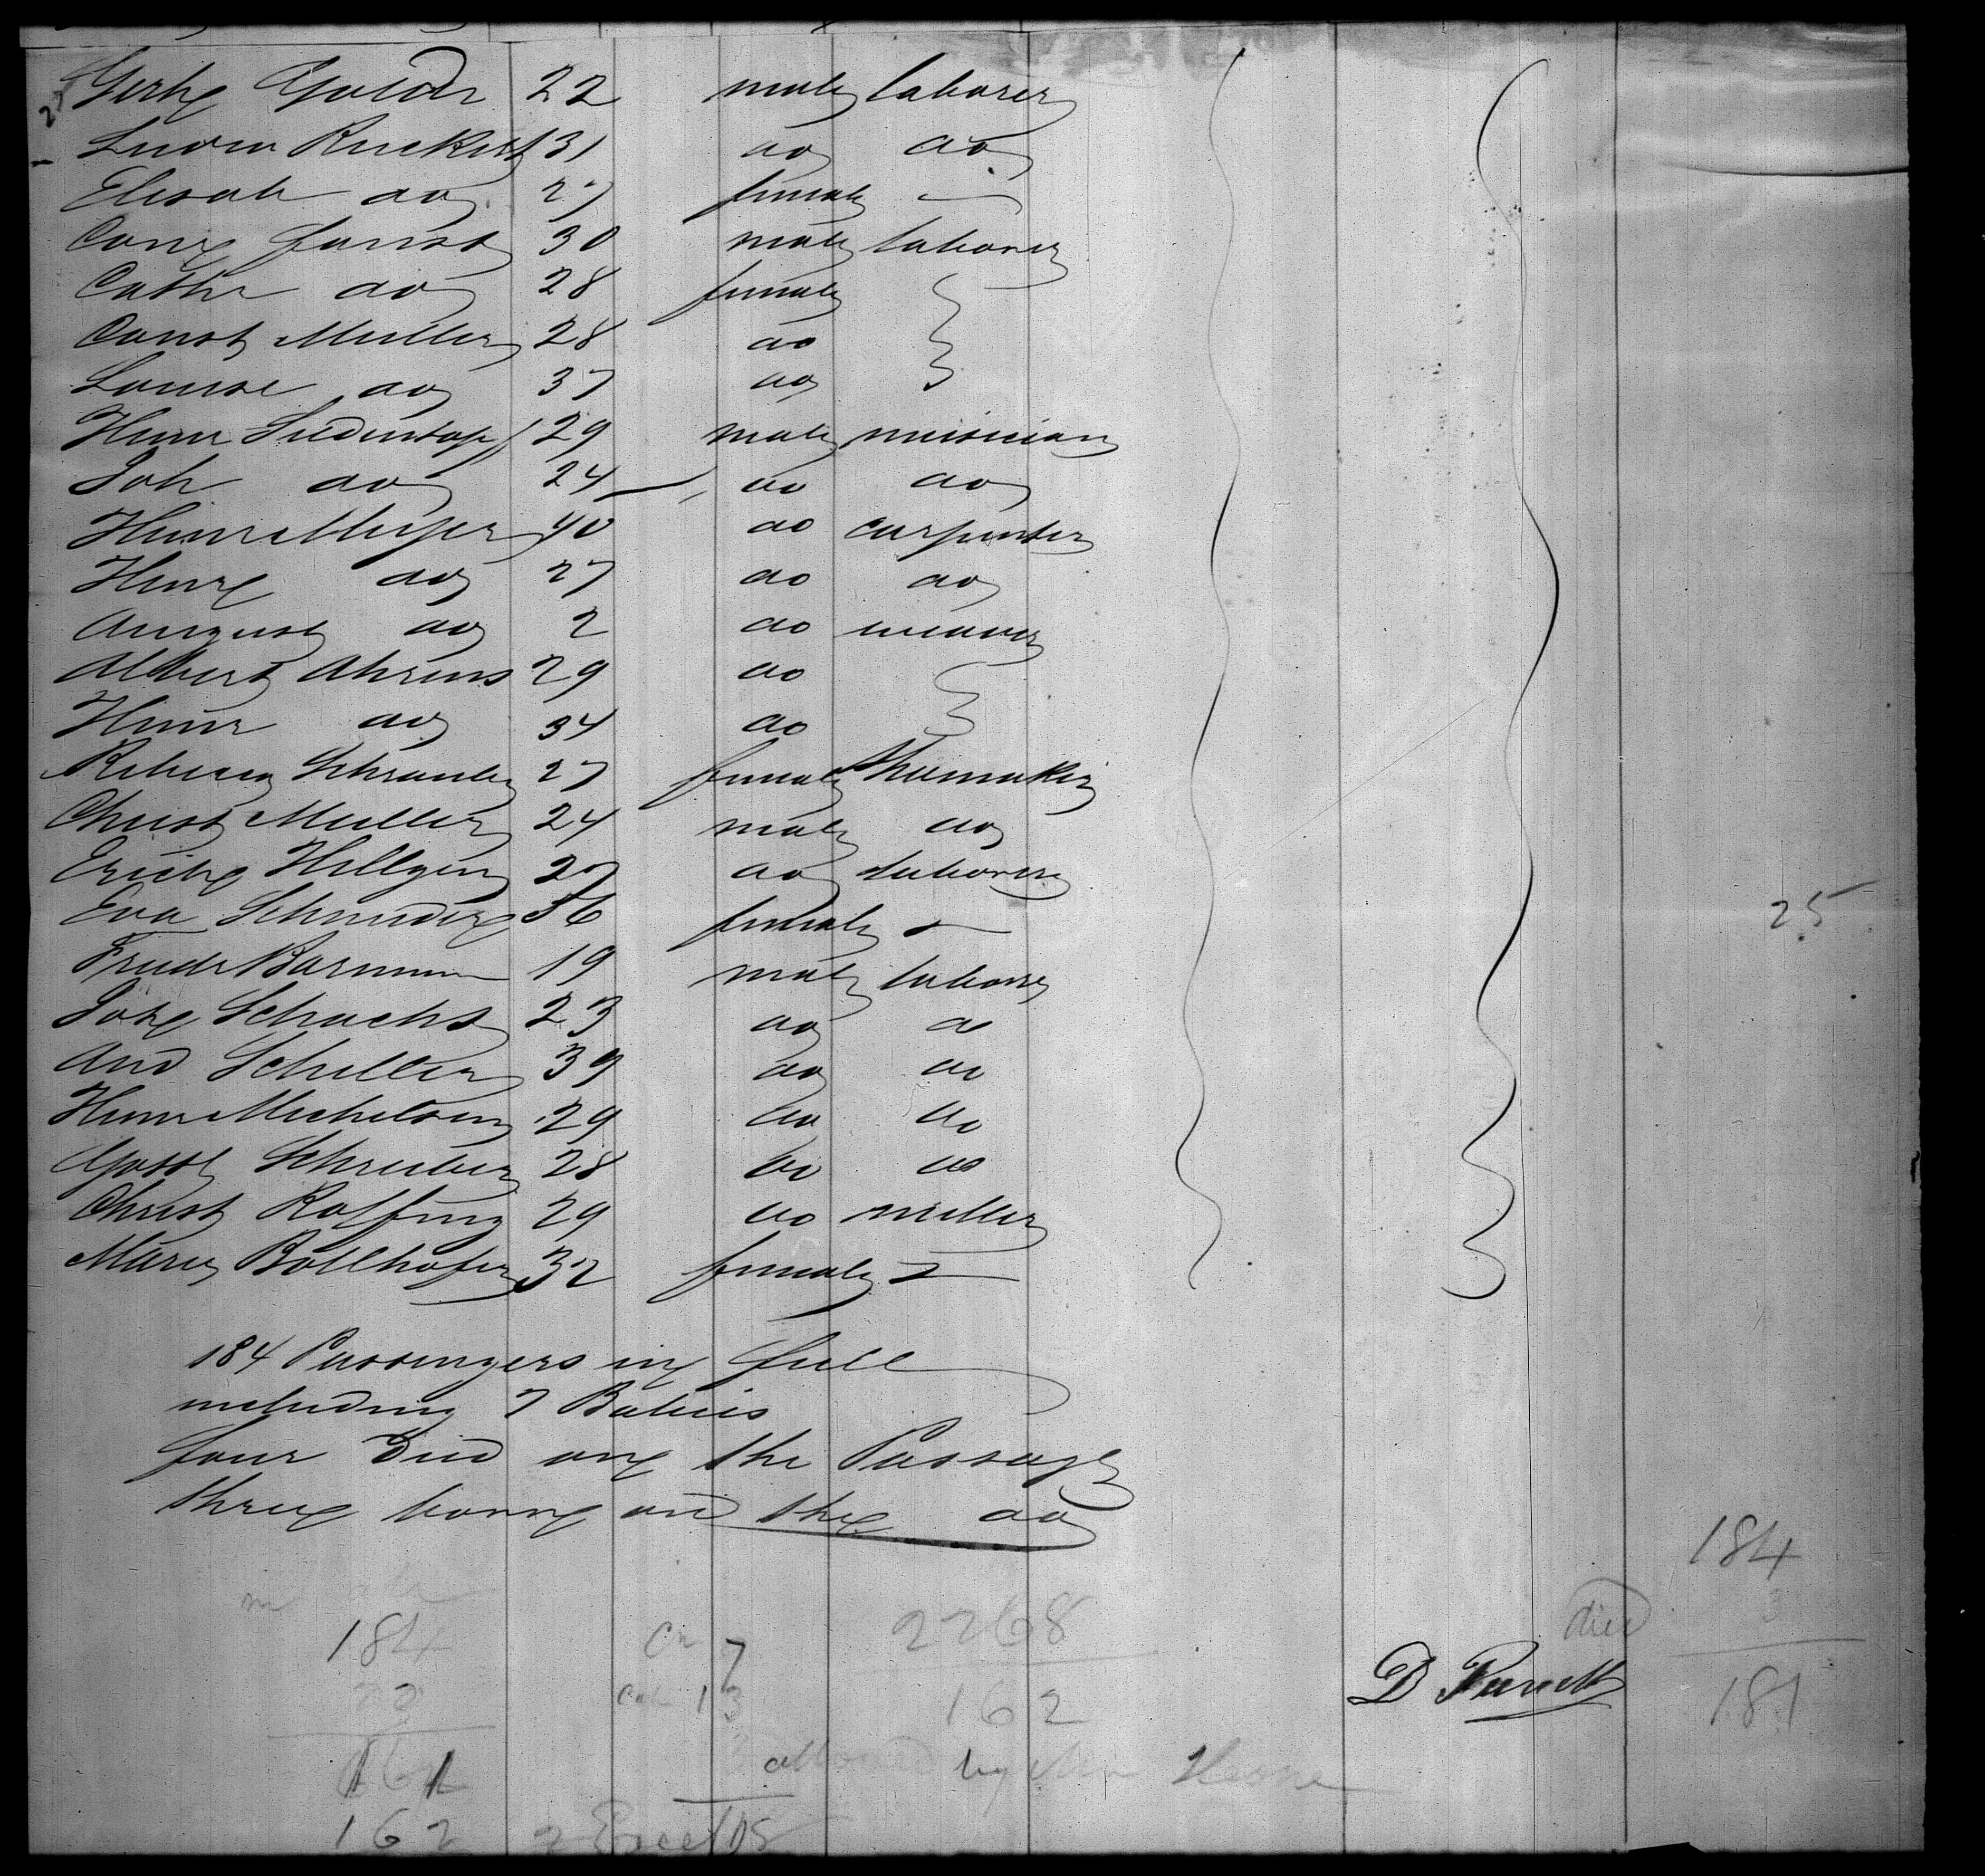 Gerh Goldn 22 male laborer
Ludw Ruckert 31 do do
Elisab do 27 female —
Conr Faust 30 male laborer
Cathr do 28 female
Const Muller 28 do
Louise do 37 do
Heinr Sudentop 29 male musician
Joh do 24 do do
Heinr Meyer 40 do carpenter
Henr do 27 do do
August do 2 do weaver
Albert Ahrens 29 do
Heinr do 34 do
Rebecca 27 female Shumaker
Christ Muller 24 male do
Erich Hillgen 27 do laborer
Eva Schneider 56 female —
Friedr Barmann 19 male laborer
Joh Schacht 23 do do
And Schiller 39 do do
Heinr Michelsen 29 do do
Gottl Schreiber 28 do do
Christ Rolfing 29 do miller
Marie Bollhofer 32 female —
25
184 Passengers in full
including 7 Babies
four Died on the Passage
three born on the do
184
died 3
181
184
23
161
162
7
13
2268
162
allowed by Mr
D